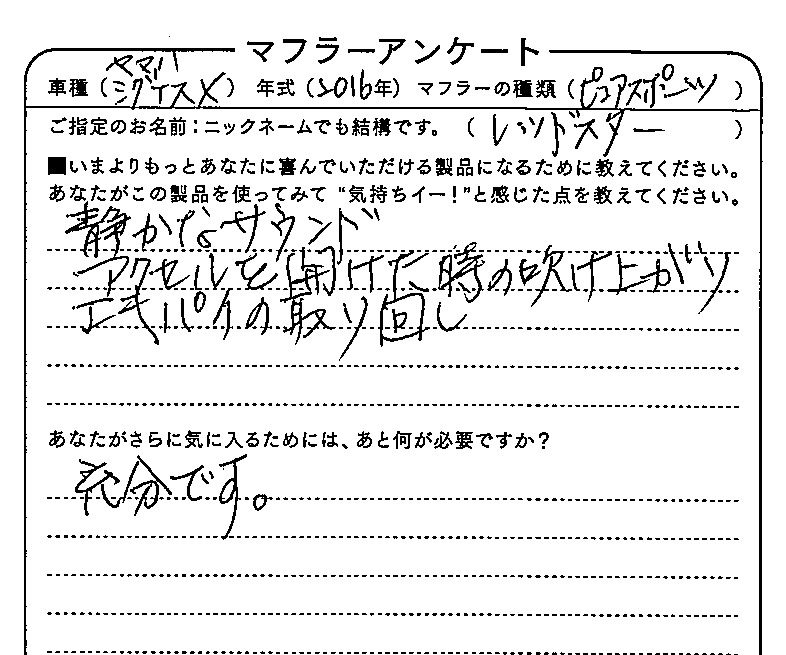 マフラーアンケート
ヤマハ
車種（シグナスX） 年式（2016年） マフラーの種類（ピュアスポーツ）
ご指定のお名前：ニックネームでも結構です。（レッドスター）
■いまよりもっとあなたに喜んでいただける製品になるために教えてください。
あなたがこの製品を使ってみて“気持ちイー！”と感じた点を教えてください。
静かなサウンド
アクセルを開けた時の吹け上がり
エキパイの取り回し
あなたがさらに気に入るためには、あと何が必要ですか？
充分です。